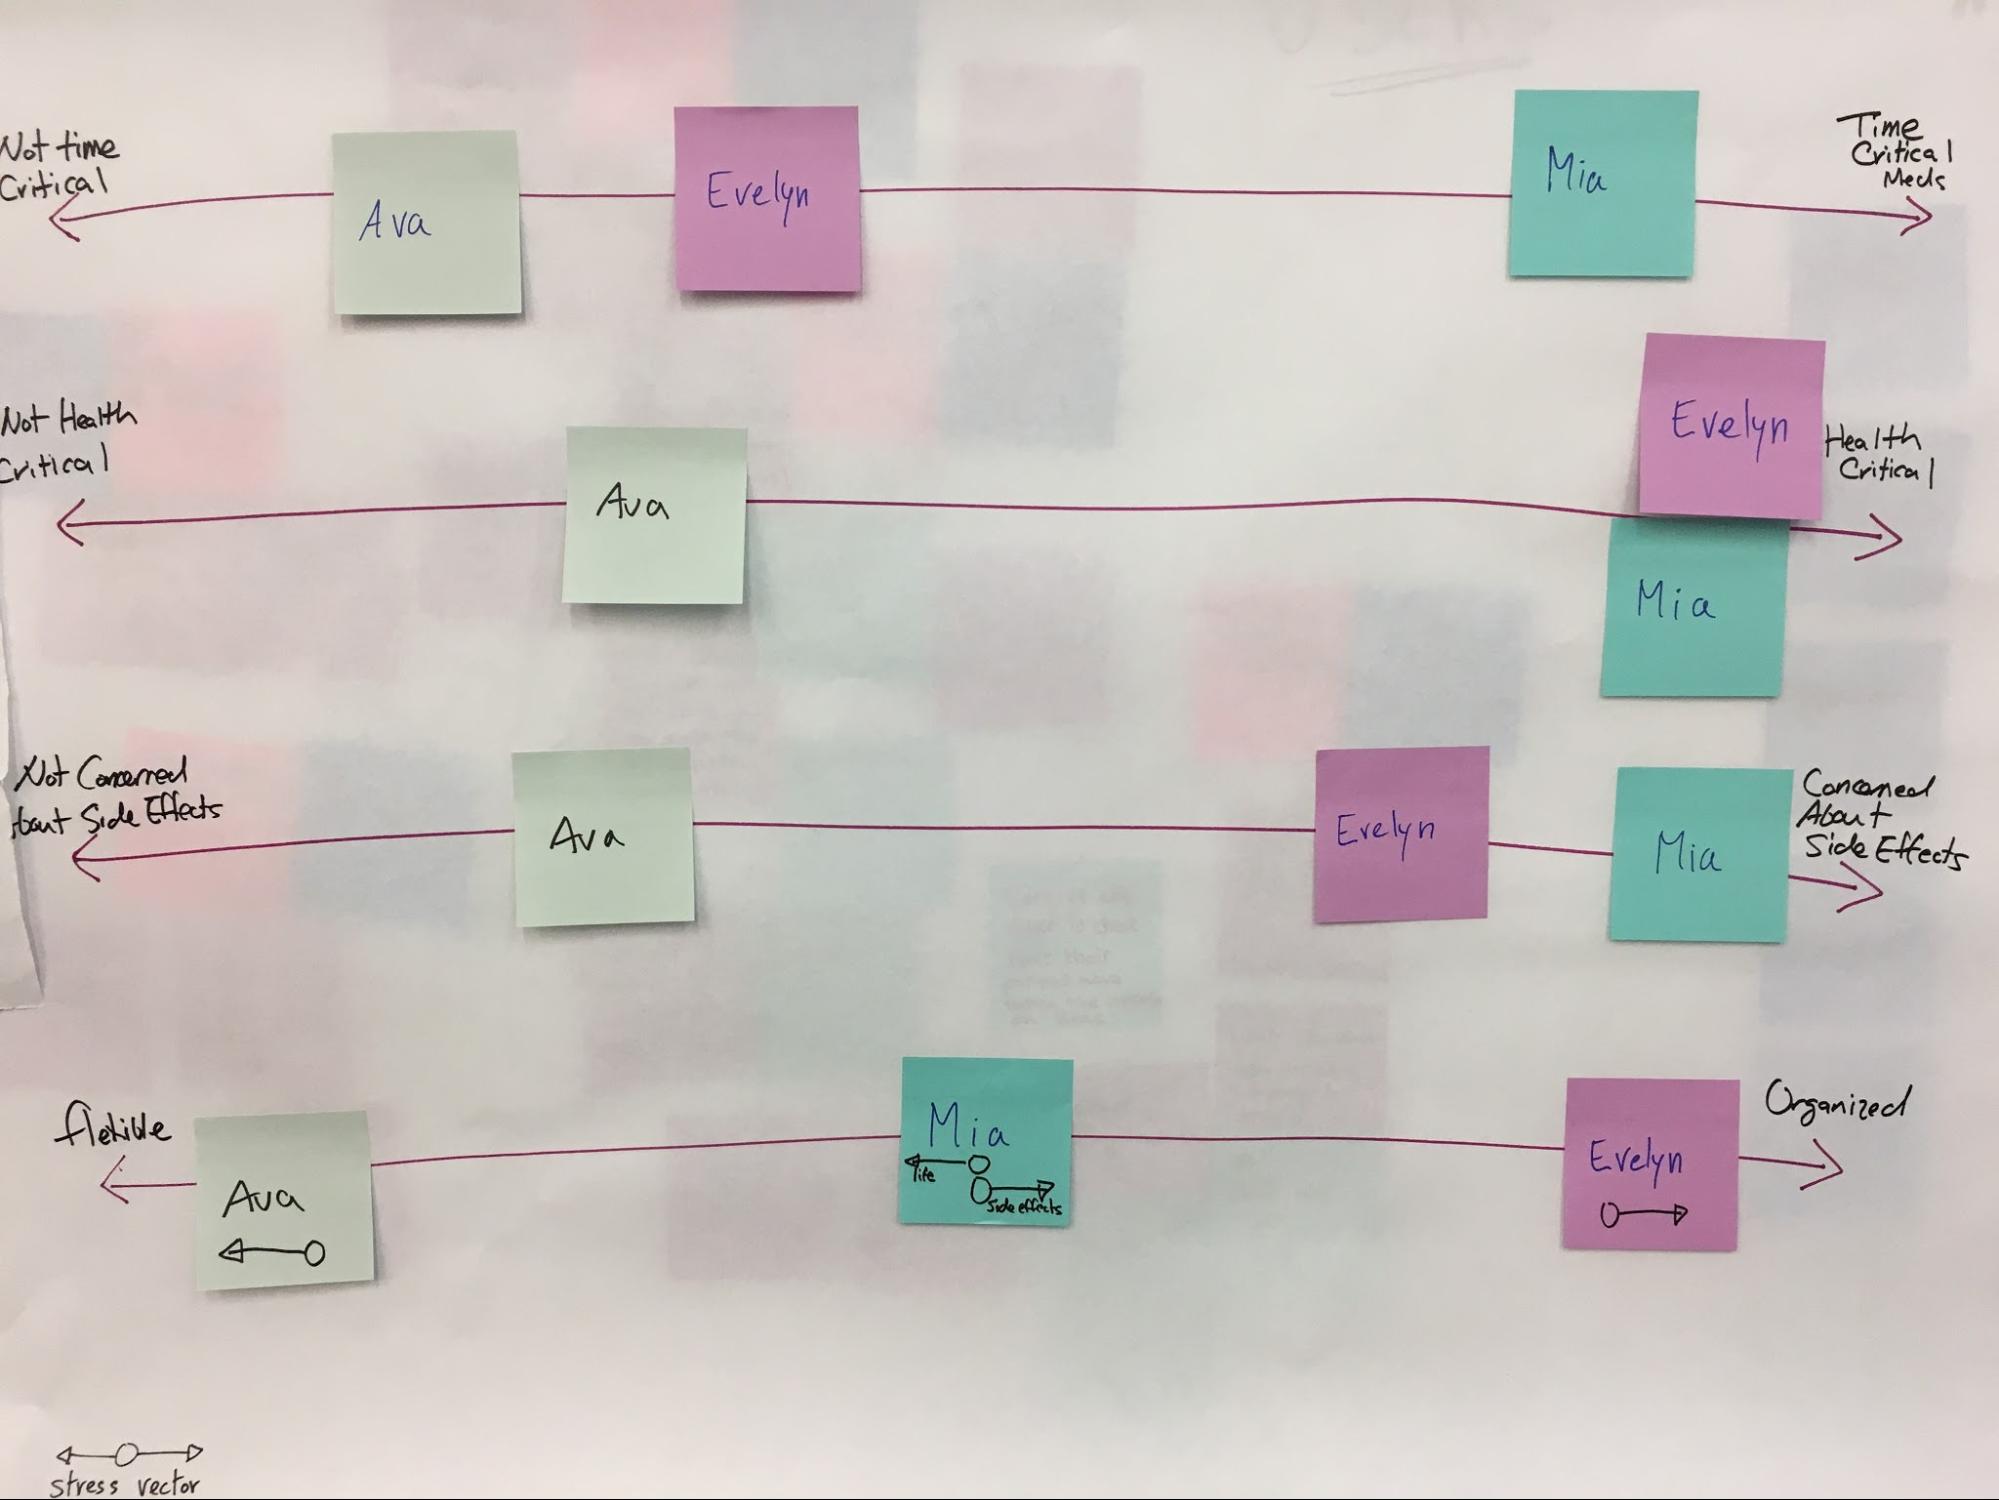 Not time
Critical
Ava
Evelyn
Mia
Time
Critical
Meds
Not Health
Critical
Ava
Evelyn
Mia
Health
Critical
Not Concerned
About Side Effects
Ava
Evelyn
Mia
Concerned
About
Side Effects
flexible
Ava
Mia
life
Side effects
Evelyn
Organized
stress vector